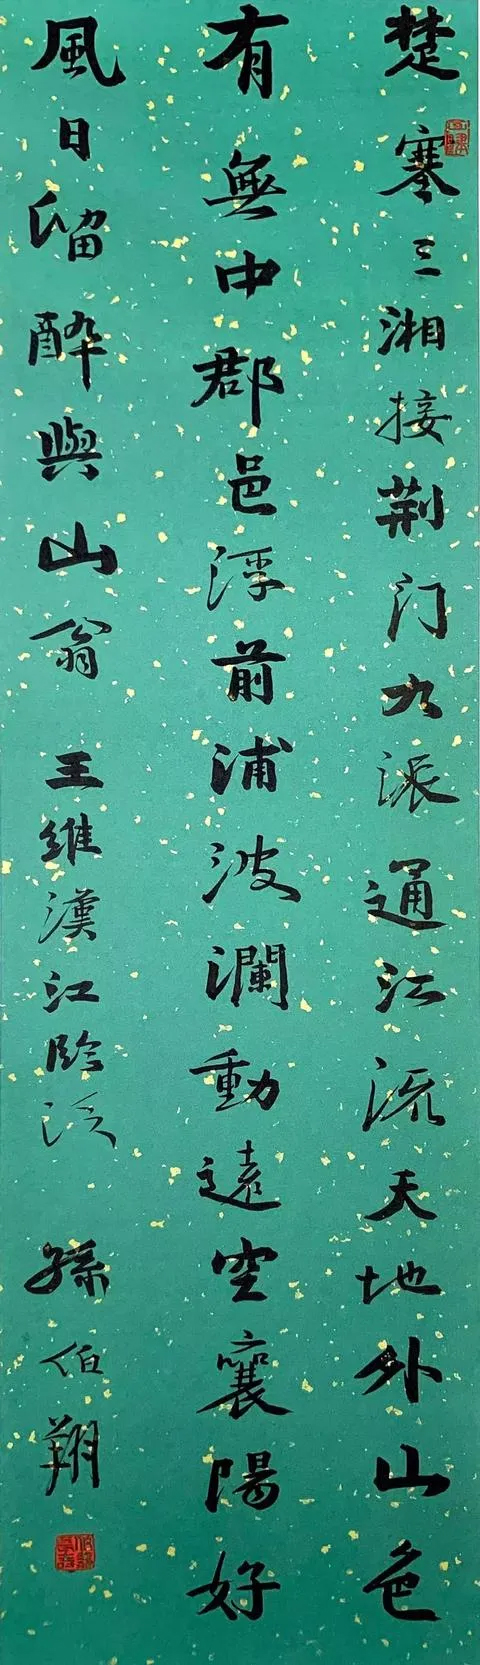 楚寒三湘接荆门九派通江流天地外山色
有無中郡邑浮前浦波瀾動遠空襄陽好
風日留醉與山翁 王維漢江臨泛 孫伯翔